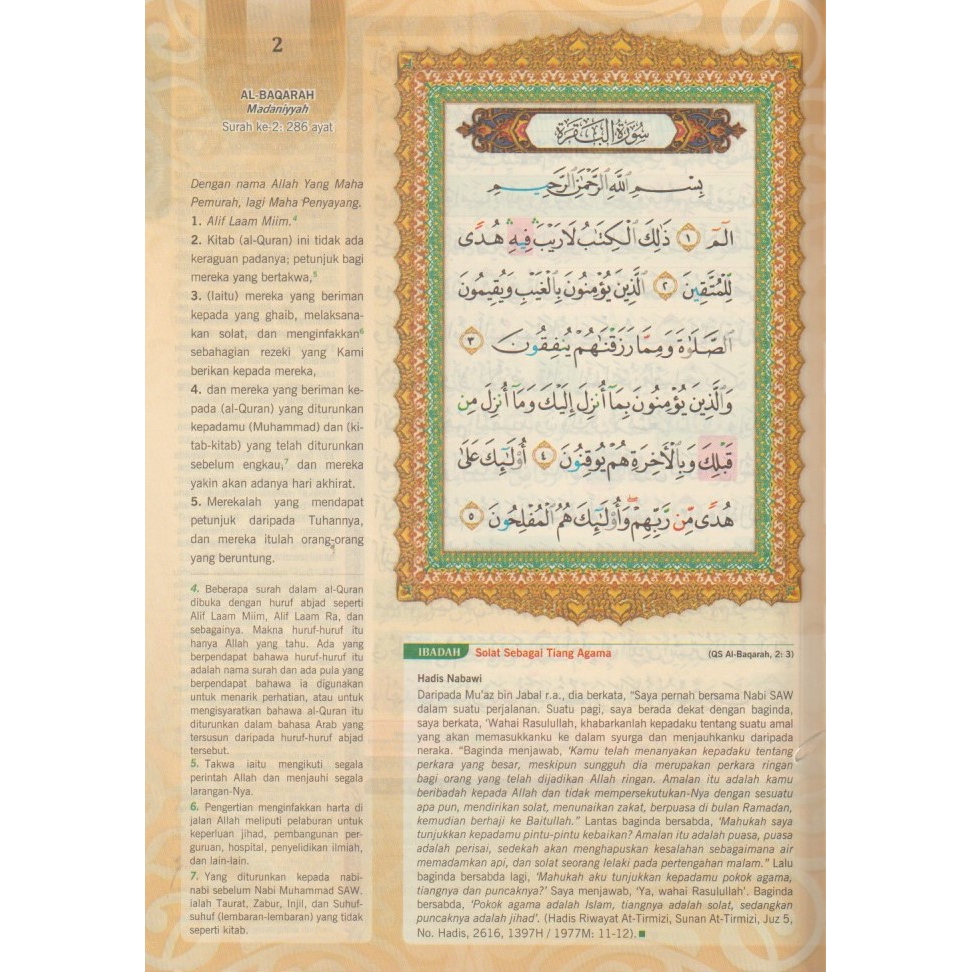 2
AL-BAQARAH
Madaniyyah
Surah ke-2: 286 ayat
Dengan nama Allah Yang Maha
Pemurah, lagi Maha Penyayang.
1. Alif Laam Miim.4
2. Kitab (al-Quran) ini tidak ada
keraguan padanya; petunjuk bagi
mereka yang bertakwa,5
3. (Iaitu) mereka yang beriman
kepada yang ghaib, melaksana-
kan solat, dan menginfakkan6
sebahagian rezeki yang Kami
berikan kepada mereka,
4. dan mereka yang beriman ke-
pada (al-Quran) yang diturunkan
kepadamu (Muhammad) dan (ki-
tab-kitab) yang telah diturunkan
sebelum engkau,7 dan mereka
yakin akan adanya hari akhirat.
5. Merekalah yang mendapat
petunjuk daripada Tuhannya,
dan mereka itulah orang-orang
yang beruntung.
4. Beberapa surah dalam al-Quran
dibuka dengan huruf abjad seperti
Alif Laam Miim, Alif Laam Ra, dan
sebagainya. Makna huruf-huruf itu
hanya Allah yang tahu. Ada yang
berpendapat bahawa huruf-huruf itu
adalah nama surah dan ada pula yang
berpendapat bahawa ia digunakan
untuk menarik perhatian, atau untuk
mengisyaratkan bahawa al-Quran itu
diturunkan dalam bahasa Arab yang
tersusun daripada huruf-huruf abjad
tersebut.
5. Takwa iaitu mengikuti segala
perintah Allah dan menjauhi segala
larangan-Nya.
6. Pengertian menginfakkan harta di
jalan Allah meliputi pelaburan untuk
keperluan jihad, pembangunan per-
guruan, hospital, penyelidikan ilmiah,
dan lain-lain.
7. Yang diturunkan kepada nabi-
nabi sebelum Nabi Muhammad SAW.
ialah Taurat, Zabur, Injil, dan Suhuf-
suhuf (lembaran-lembaran) yang tidak
seperti kitab.
سُورَةُ الْبَقَرَةِ
بِسْمِ ٱللَّهِ ٱلرَّحْمَٰنِ ٱلرَّحِيمِ
الٓمٓ ١ ذَٰلِكَ ٱلْكِتَٰبُ لَا رَيْبَ ۛ فِيهِ ۛ هُدًى
لِّلْمُتَّقِينَ ٢ ٱلَّذِينَ يُؤْمِنُونَ بِٱلْغَيْبِ وَيُقِيمُونَ
ٱلصَّلَوٰةَ وَمِمَّا رَزَقْنَٰهُمْ يُنفِقُونَ ٣
وَٱلَّذِينَ يُؤْمِنُونَ بِمَآ أُنزِلَ إِلَيْكَ وَمَآ أُنزِلَ مِن
قَبْلِكَ وَبِٱلْأَخِرَةِ هُمْ يُوقِنُونَ ٤ أُو۟لَٰٓئِكَ عَلَىٰ
هُدًى مِّن رَّبِّهِمْ ۖ وَأُو۟لَٰٓئِكَ هُمُ ٱلْمُفْلِحُونَ ٥
IBADAH Solat Sebagai Tiang Agama (QS Al-Baqarah, 2: 3)
Hadis Nabawi
Daripada Mu'az bin Jabal r.a., dia berkata, "Saya pernah bersama Nabi SAW
dalam suatu perjalanan. Suatu pagi, saya berada dekat dengan baginda,
saya berkata, 'Wahai Rasulullah, khabarkanlah kepadaku tentang suatu amal
yang akan memasukkanku ke dalam syurga dan menjauhkanku daripada
neraka. "Baginda menjawab, 'Kamu telah menanyakan kepadaku tentang
perkara yang besar, meskipun sungguh dia merupakan perkara ringan
bagi orang yang telah dijadikan Allah ringan. Amalan itu adalah kamu
beribadah kepada Allah dan tidak mempersekutukan-Nya dengan sesuatu
apa pun, mendirikan solat, menunaikan zakat, berpuasa di bulan Ramadan,
kemudian berhaji ke Baitullah." Lantas baginda bersabda, 'Mahukah saya
tunjukkan kepadamu pintu-pintu kebaikan? Amalan itu adalah puasa, puasa
adalah perisai, sedekah akan menghapuskan kesalahan sebagaimana air
memadamkan api, dan solat seorang lelaki pada pertengahan malam." Lalu
baginda bersabda lagi, 'Mahukah aku tunjukkan kepadamu pokok agama,
tiangnya dan puncaknya?' Saya menjawab, 'Ya, wahai Rasulullah'. Baginda
bersabda, 'Pokok agama adalah Islam, tiangnya adalah solat, sedangkan
puncaknya adalah jihad'. (Hadis Riwayat At-Tirmizi, Sunan At-Tirmizi, Juz 5,
No. Hadis, 2616, 1397H / 1977M: 11-12).